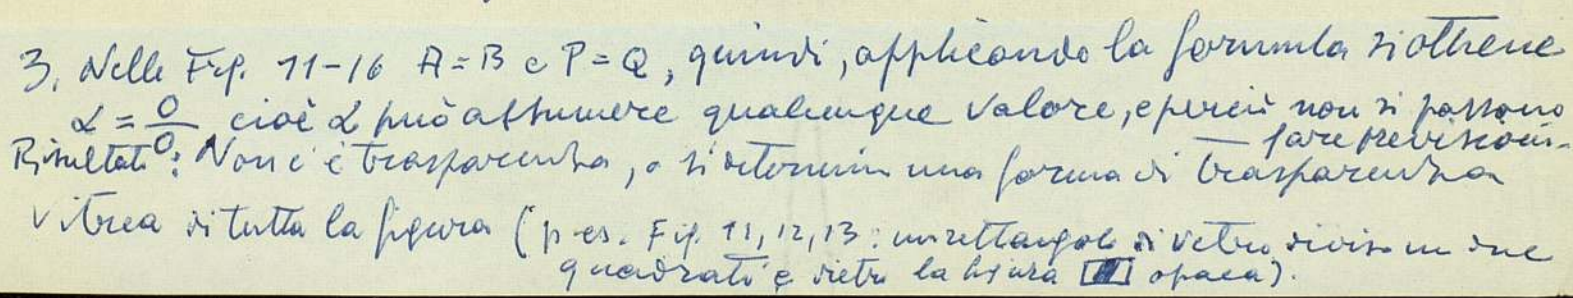 3. Nelle Fig. 11-16 A=B e P=Q, quindi, applicando la formula si ottiene
α = 0/0 cioè α può assumere qualunque valore, e perciò non si possono
fare previsioni.
Risultati: Non c'è trasparenza, o si determina una forma di trasparenza
vitrea di tutta la figura (p. es. Fig. 11, 12, 13: un rettangolo di vetro diviso in due
quadrati e dietro la figura opaca).